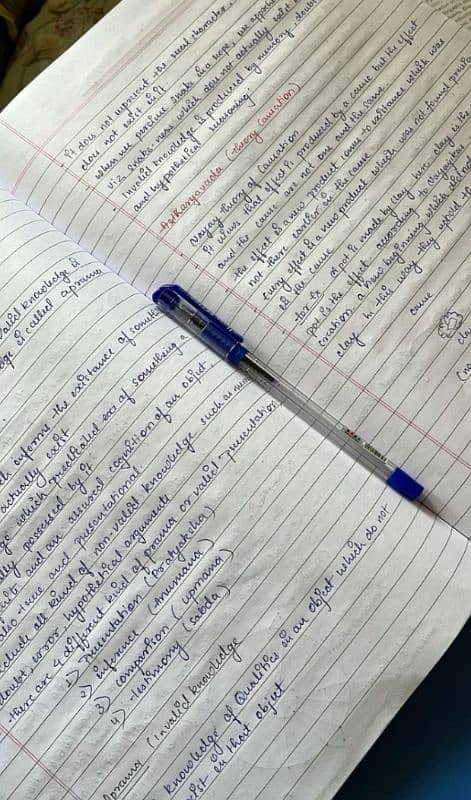 it does not represent the real character,
does not exist
when we perceive snake in a rope, we
viz snake ness which does not actually exist
invalid knowledge is produced by memory, doubt
and hypothetical reasoning.
Asatkaryavada (theory causation)
nyaya theory of causation
it views that effect is produced by a cause but the effect
and the cause are not one and the same
the effect is a new product come to existence which was
not there earlier in the cause
every effect is a new product which was not found
is the cause
to ex a pot is made by clay here clay is the
pot is the effect according to
creation a new beginning which did
clay in this way they whole
cause
valid knowledge is
is called aprama
informs the existance of
actually exist
which of something a
possessed by it
and an assured cognition of an object
true and presentational
exclude all kind of non valid knowledge such as
doubt error hypothetical arguments
there are 4 different kind of prama or valid presentation
1) Presentation (pratyaksha)
2) inference (Anumana)
3) comparison (upmana)
4) testimony (sabda)
Aprama (invalid knowledge
knowledge of Qualities in an object which do not
exist in that object